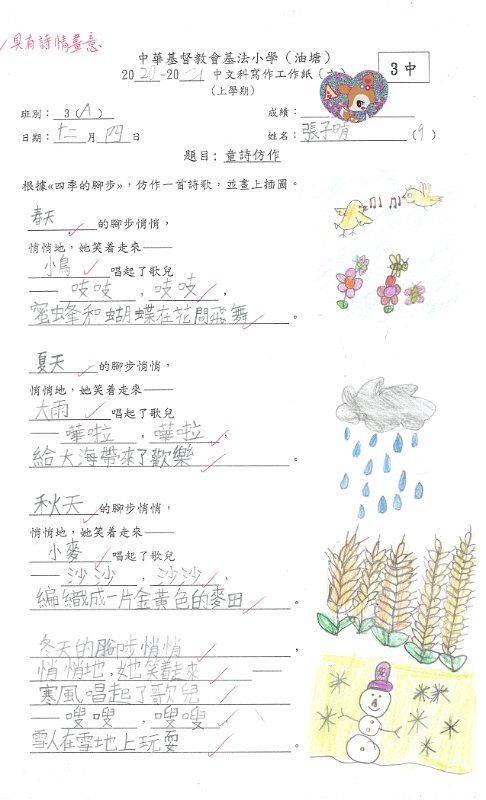 具有詩情畫意
中華基督教會基法小學（油塘）
2020-2021 中文科寫作工作紙（六）
3中
（上學期）
班別： 3（A）
成績：
日期：十二月四日
姓名：張子晴（9）
題目：童詩仿作
根據«四季的腳步»，仿作一首詩歌，並畫上插圖。
春天的腳步悄悄，
悄悄地，她笑着走來——
小鳥唱起了歌兒
—— 吱吱，吱吱，
蜜蜂和蝴蝶在花間飛舞。
夏天的腳步悄悄，
悄悄地，她笑着走來——
大雨唱起了歌兒
—— 嘩啦，嘩啦，
給大海帶來了歡樂。
秋天的腳步悄悄，
悄悄地，她笑着走來——
小麥唱起了歌兒
—— 沙沙，沙沙，
編織成一片金黃色的麥田。
冬天的腳步悄悄，
悄悄地，她笑着走來——
寒風唱起了歌兒
—— 嗖嗖，嗖嗖，
雪人在雪地上玩耍。